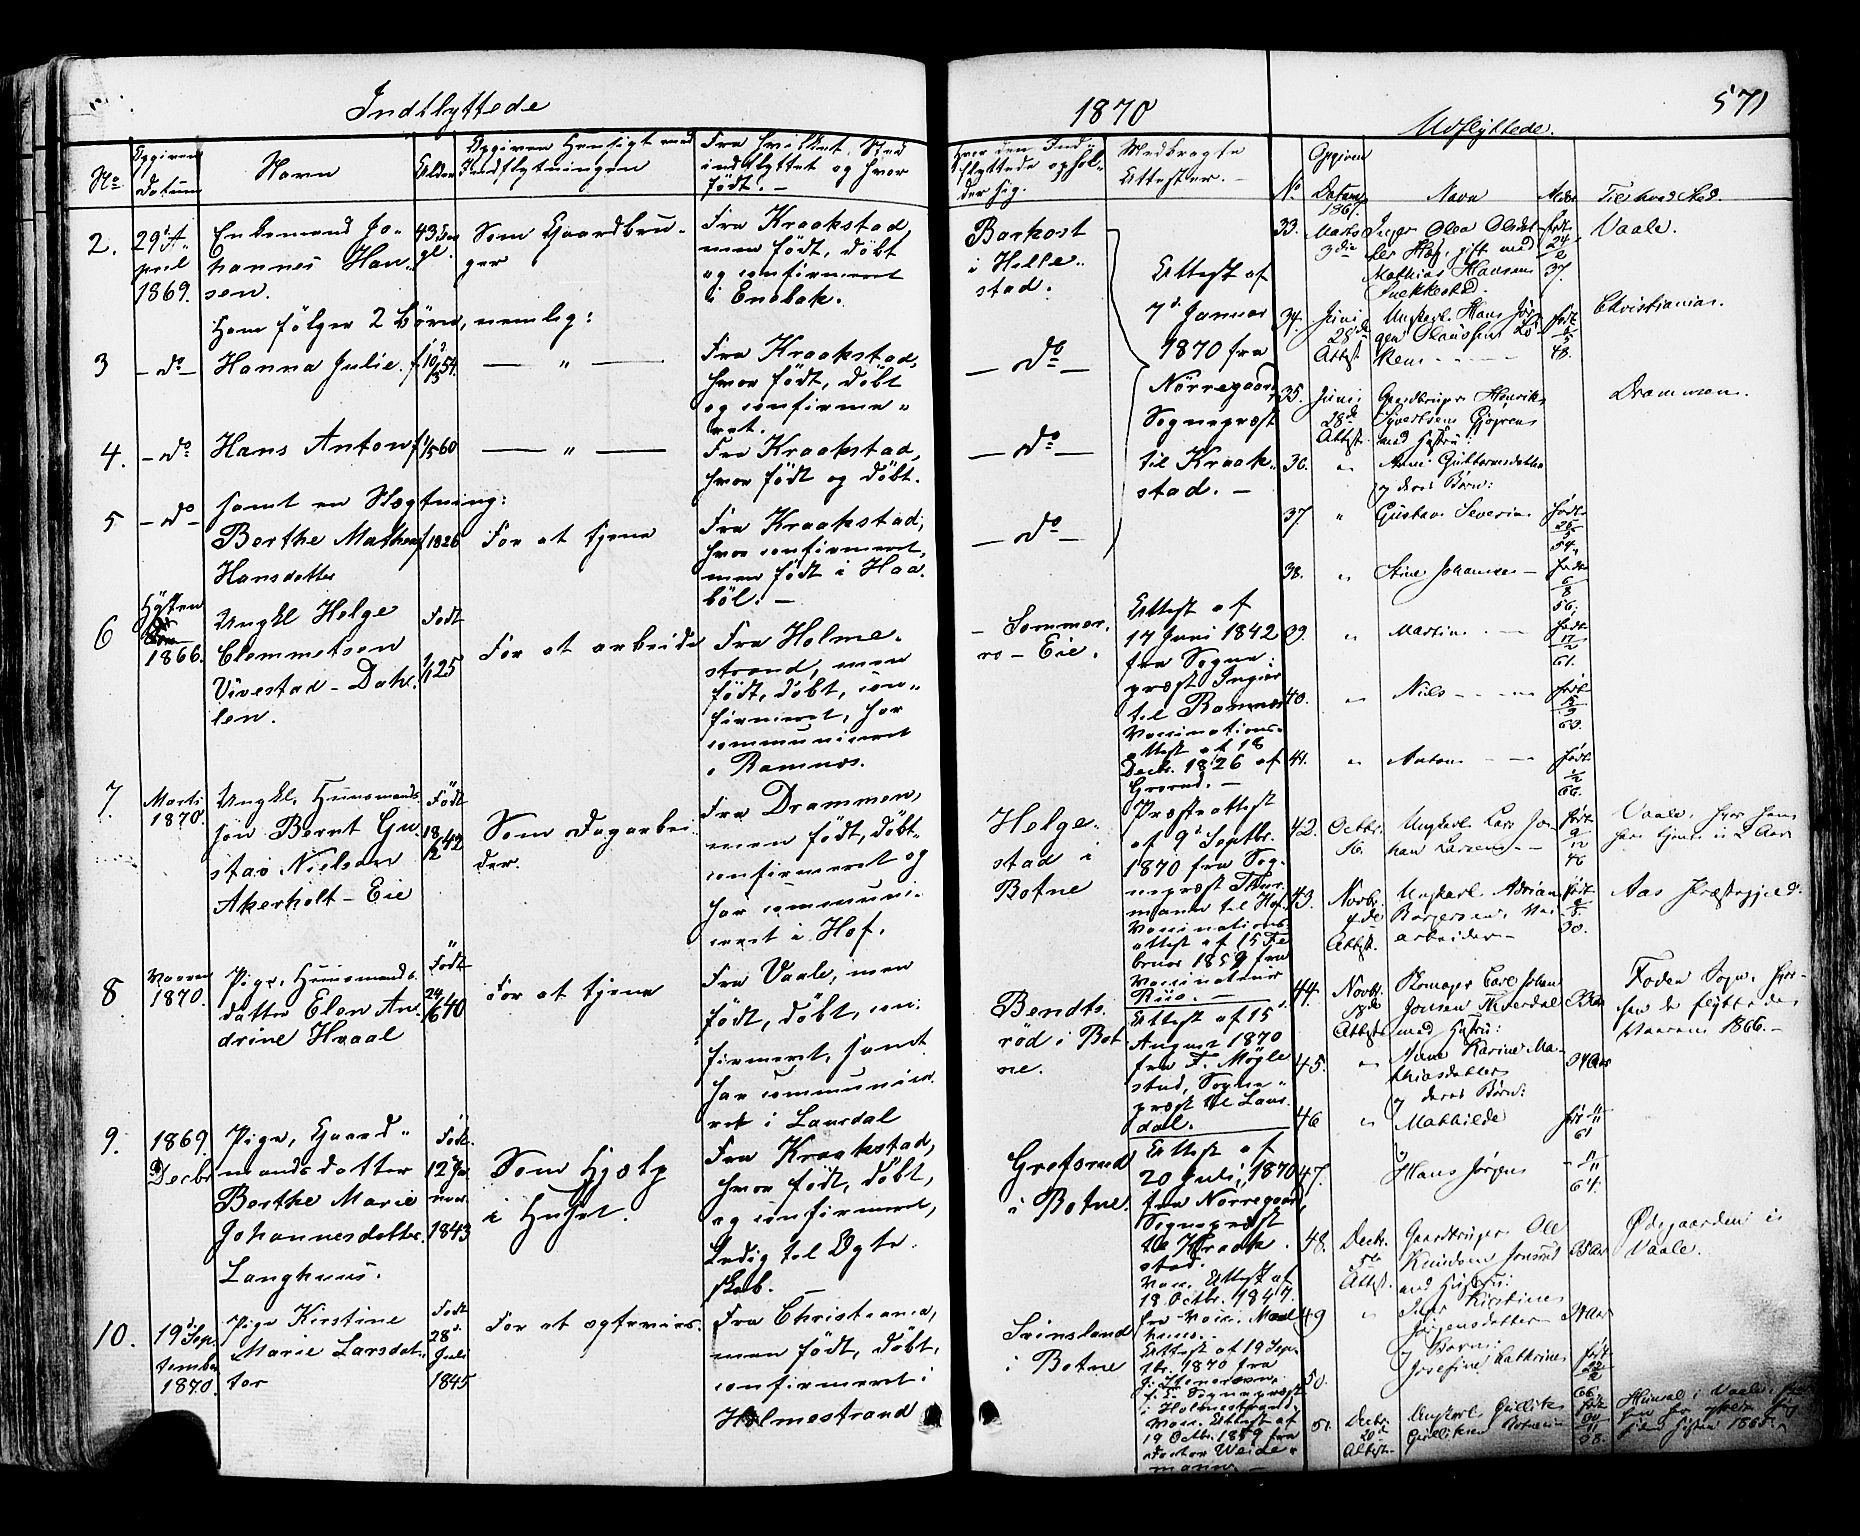 Indflyttede
1870
Udflyttede.
571
No
Opgiven Datum
Navn
Alder
Opgiven Hensigt med Indflytningen
Fra hvilket Sted indflyttet og hvor født. —
Hvor den Indflyttede opholder sig.
Medbragte Attester. —
2.
29' April 1869.
Enkemand Johannes Hansen.
43 Aar gl.
Som Gaardbruger
Fra Kraakstad, men født, døbt og confirmeret i Enebak.
Barkost i Hillestad.
Attest af 7' Januar 1870 fra Nørregaard, Sognepræst til Kraakstad. —
Ham følger 2 Børn, nemlig:
3
— do —
Hanna Julie.
— " —
Fra Kraakstad, hvor født, døbt og confirmeret.
— do —
4.
— do
Hans Anton
f 1/5 60
— " —
Fra Kraakstad, hvor født og døbt.
— do —
samt en Slægtning:
5
— do —
Berthe Mathea Hansdatter
f 1826
For at tjene
Fra Kraakstad, hvor confirmeret, men født i Haabøl. —
— do —
6
Høsten 1866.
Ungkl Helge Clemmetsen Vivestad-Dahlen.
Født 1/1 25
For at arbeide
Fra Holmestrand, men født, døbt, confirmeret, har communiceret i Ramnæs.
— Sommerro-Eie.
Attest af 17 Juni 1842 fra Sognepræst Ingier til Ramnæs Vaccinations-attest af 18 Decbr. 1826 af
7.
Marts 1870.
Ungkl. Huusmands søn Bernt Gustav Nielsen Akerholt-Eie
Født 18/2 42
Som Dagarbeider.
Fra Drammen, men født, døbt, confirmeret og har communiceret i Hof.
Helgestad i Botne
Præsteattest af 9' Septbr. 1870 fra Sognepræst Thurmann til Hof. Vaccinations-attest af 15 Februar 1859 fra Vaccinateur Riis. —
8
Vaaren 1870.
Pige, Huusmandsdatter Elen Andrine Hvaal
Født 24/6 40
For at tjene
Fra Vaale, men født, døbt, confirmeret, samt har communiceret i Laurdal
Bendtsrød i Botne.
Attest af 15 August 1870 fra F. Møglestad, Sognepræst til Laurdal.
9.
1869. Decbr
Pige, Gaardmandsdatter Berthe Marie Johannesdatter Langhuus.
Født 12' Januar 1843
Som Hjælp i Huset.
Fra Kraakstad, hvor født, døbt, og confirmeret, Ledig til Ægteskab.
Grefsrud i Botne.
Attest af 20 Juli 1870 fra Nørregaard, Sognepræst til Kraakstad. Vacc. Attest af 18 Octbr. 1847. fra Vacc.
10.
19' September 1870.
Pige Kirstine Marie Larsdatter
Født 28' Juli 1845
For at ægtevies.
Fra Christiania, men født, døbt, confirmeret i Holmestrand
Sviesland i Botne
Attest af 19 Septbr. 1870 fra Sognepræst i Holmestrand. Vacc. Attest af 19 Octbr. 1859 fra Doctor Weidemann. —
No
Opgiven Datum 1867.
Navn
Alder
Til hvad Sted.
33.
Marts 3die
Inger Olea Olsdatter Hæg, gift med Mathias Hansen
født 24/2 37.
Vaale.
34.
Juni 28de Attest.
Ungkarl Hans Jørgen Olaussen
født 48.
Christiania.
35.
Juni 28de Attest.
Gaardbruger Henrik Syvertsen med Hustru:
Drammen.
36.
"
Anne Guttormsdatter og deres Børn:
37
"
Gustav Severin
født 54.
38.
"
Stine Johanne —
født 6/8 56.
39.
"
Martin — —
født 17/2 61.
40.
"
Nils — — —
født 63.
41.
"
Anton — —
født 66.
42.
Octbr.
Ungkarl Lars Johan Larsen —
født 9/12 46
Vaale, hvor han har tjent i 2 Aar
43.
Novbr. Attest.
Ungkarl Adrian Børgersen, Veiarbeider —
født
Aas Præstegjeld.
44.
Novbr. 18de Attest
Skomager Carl Johan Jonsen med Hustru:
Foden Sogn, hvorhen de flyttede Vaaren 1866. —
45.
"
Anne Karine Mathiasdatter og deres Børn:
46
"
Mathilde
61
47.
Hans Jørgen
64.
48.
Decbr. 5te Attest.
Gaardbruger Ole Knudsen med Hustru:
35 Aar
Ødegaarden i Vaale.
49
"
Kirstine Jørgensdatter
og Barn:
50.
Josefine Kathrine
født 22/2 66.
51.
Decbr. 20de Attest.
Ungkarl Gullik Gulliksen
født 38.
i Vaale, siden Høsten 1865.